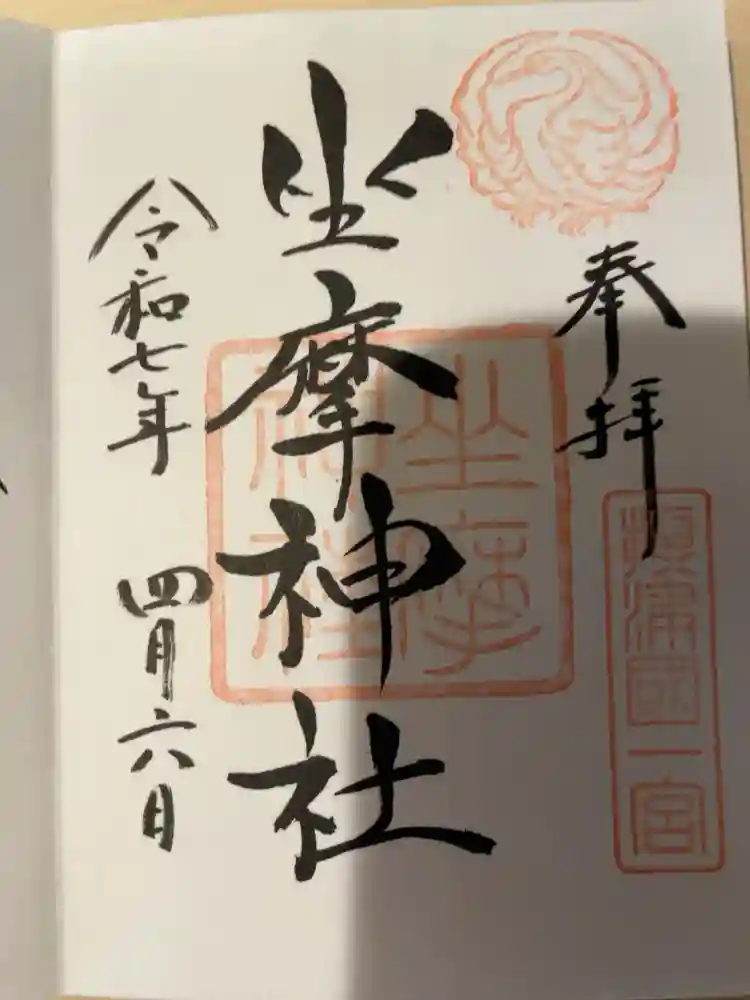 奉拝
攝津國一宮
坐摩神社
坐摩神社
令和七年 四月六日